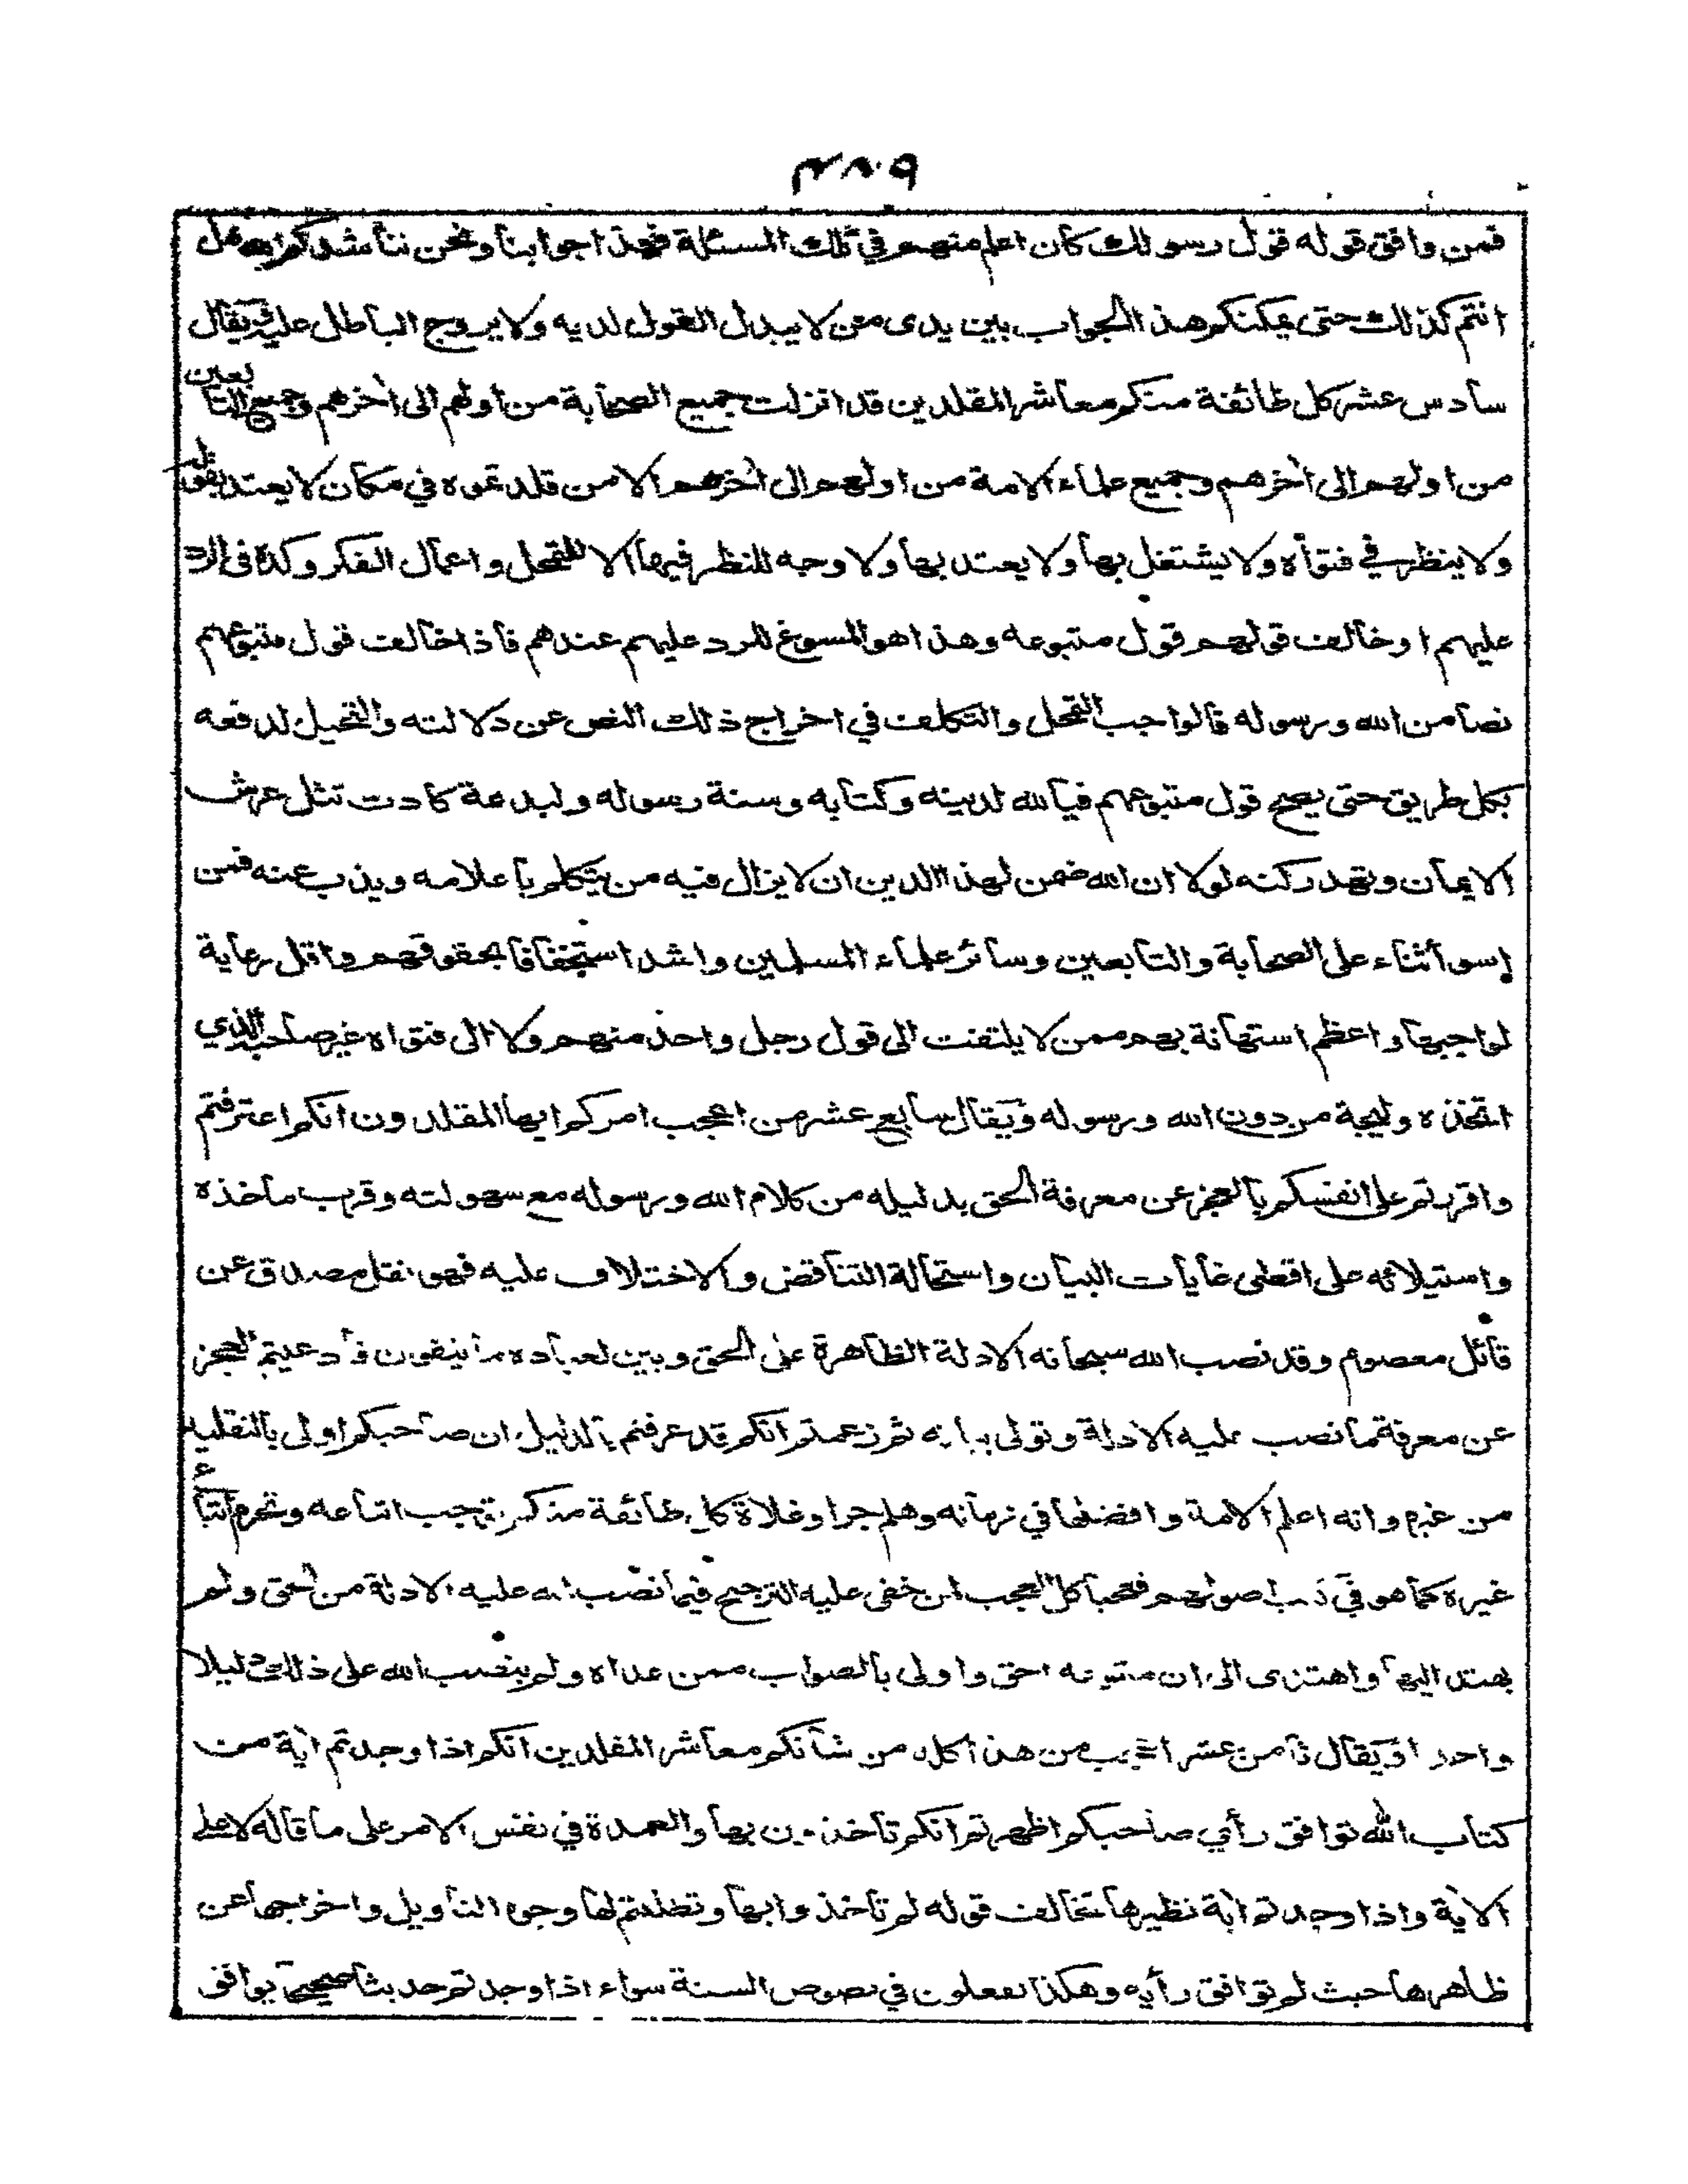 ٣٨٩
فمن وافق قوله قول رسولك كان اعلم منهم في تلك المسئلة فهذا جوابنا ونحن نناشدكم الله هل
انتم كذلك حتى يمكنكم هذا الجواب بين يدى من لا يبدل القول لديه ولا يروج الباطل عليه ويقال
سادس عشر كل طائفة منكم معاشر المقلدين قد انزلت جميع الصحابة من اولهم الى اخرهم وجميع التابعين
من اولهم الى اخرهم وجميع علماء الامة من اولهم الى اخرهم الا من قلدتموه في مكان لا يعتد بقوله
ولا ينظر في فتواه ولا يشتغل بها ولا يعتد بها ولا وجه للنظر فيها الا للتمحل واعمال الفكر وكده فى الرد
عليهم اوخالف قولهم قول متبوعه وهذا هو المسوغ للرد عليهم عندهم فاذا خالف قول متبوعهم
نصا من الله ورسوله فالواجب التمحل والتكلف في اخراج ذلك النص عن دلالته والتحيل لدفعه
بكل طريق حتى يصح قول متبوعهم فيالله لدينه وكتابه وسنة رسوله ولبدعة كادت تثل عرش
الايمان وتهد ركنه لولا ان الله ضمن لهذا الدين ان لا يزال فيه من يتكلم باعلامه ويذب عنه فمن
اسوأ ثناء على الصحابة والتابعين وسائر علماء المسلمين واشد استخفافا بحقوقهم واقل رعاية
لواجبها واعظم استهانة بهم ممن لا يلتفت الى قول رجل واحد منهم ولا الى فتواه غير صاحبه الذي
اتخذه وليجة من دون الله ورسوله ويقال سابع عشر من اعجب امركم ايها المقلدون انكم اعترفتم
واقررتم على انفسكم بالعجز عن معرفة الحق بدليله من كلام الله ورسوله مع سهولته وقرب ماخذه
واستيلائه على اقصى غايات البيان واستحالة التناقض والاختلاف عليه فهو نقل مصدق عن
قائل معصوم وقد نصب الله سبحانه الادلة الظاهرة على الحق وبين لعباده ما يتقون فادعيتم العجز
عن معرفة ما نصب عليه الادلة وتولى بيانه ثم زعمتم انكم قد عرفتم بالدليل ان صاحبكم اولى بالتقليد
من غيره وانه اعلم الامة وافضلها في زمانه وهلم جرا وغلاة كل طائفة منكم توجب اتباعه وتحرم اتباع
غيره كما هو في كتب اصولهم فعجبا كل العجب لمن خفى عليه الترجيح فيما نصب الله عليه الادلة من الحق ولم
يهتد اليها واهتدى الى ان متبوعه احق واولى بالصواب ممن عداه ولم ينصب الله على ذلك دليلا
واحدا ويقال ثامن عشر اعجب من هذا كله من شانكم معاشر المقلدين انكم اذا وجدتم اية من
كتاب الله توافق رأي صاحبكم اظهرتم انكم تاخذون بها والعمدة في نفس الامر على ما قاله لا على
الاية واذا وجدتم اية نظيرها تخالف قوله لم تاخذوا بها وتطلبتم لها وجوه التاويل واخراجها عن
ظاهرها حيث لم توافق رأيه وهكذا تفعلون في نصوص السنة سواء اذا وجدتم حديثا صحيحا يوافق